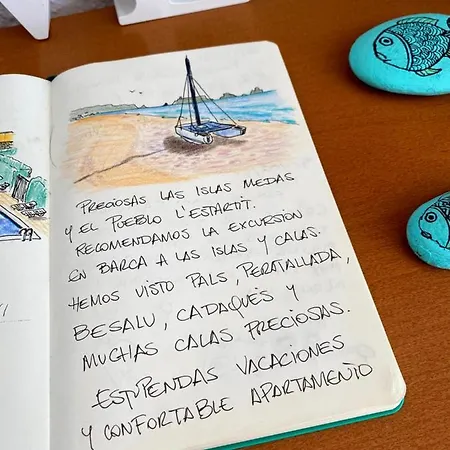 PRECIOSAS LAS ISLAS MEDAS
Y EL PUEBLO L'ESTARTIT.
RECOMENDAMOS LA EXCURSIÓN
EN BARCA A LAS ISLAS Y CALAS.
HEMOS VISTO PALS, PERATALLADA,
BESALU, CADAQUÉS Y
MUCHAS CALAS PRECIOSAS.
ESTUPENDAS VACACIONES
Y CONFORTABLE APARTAMENTO